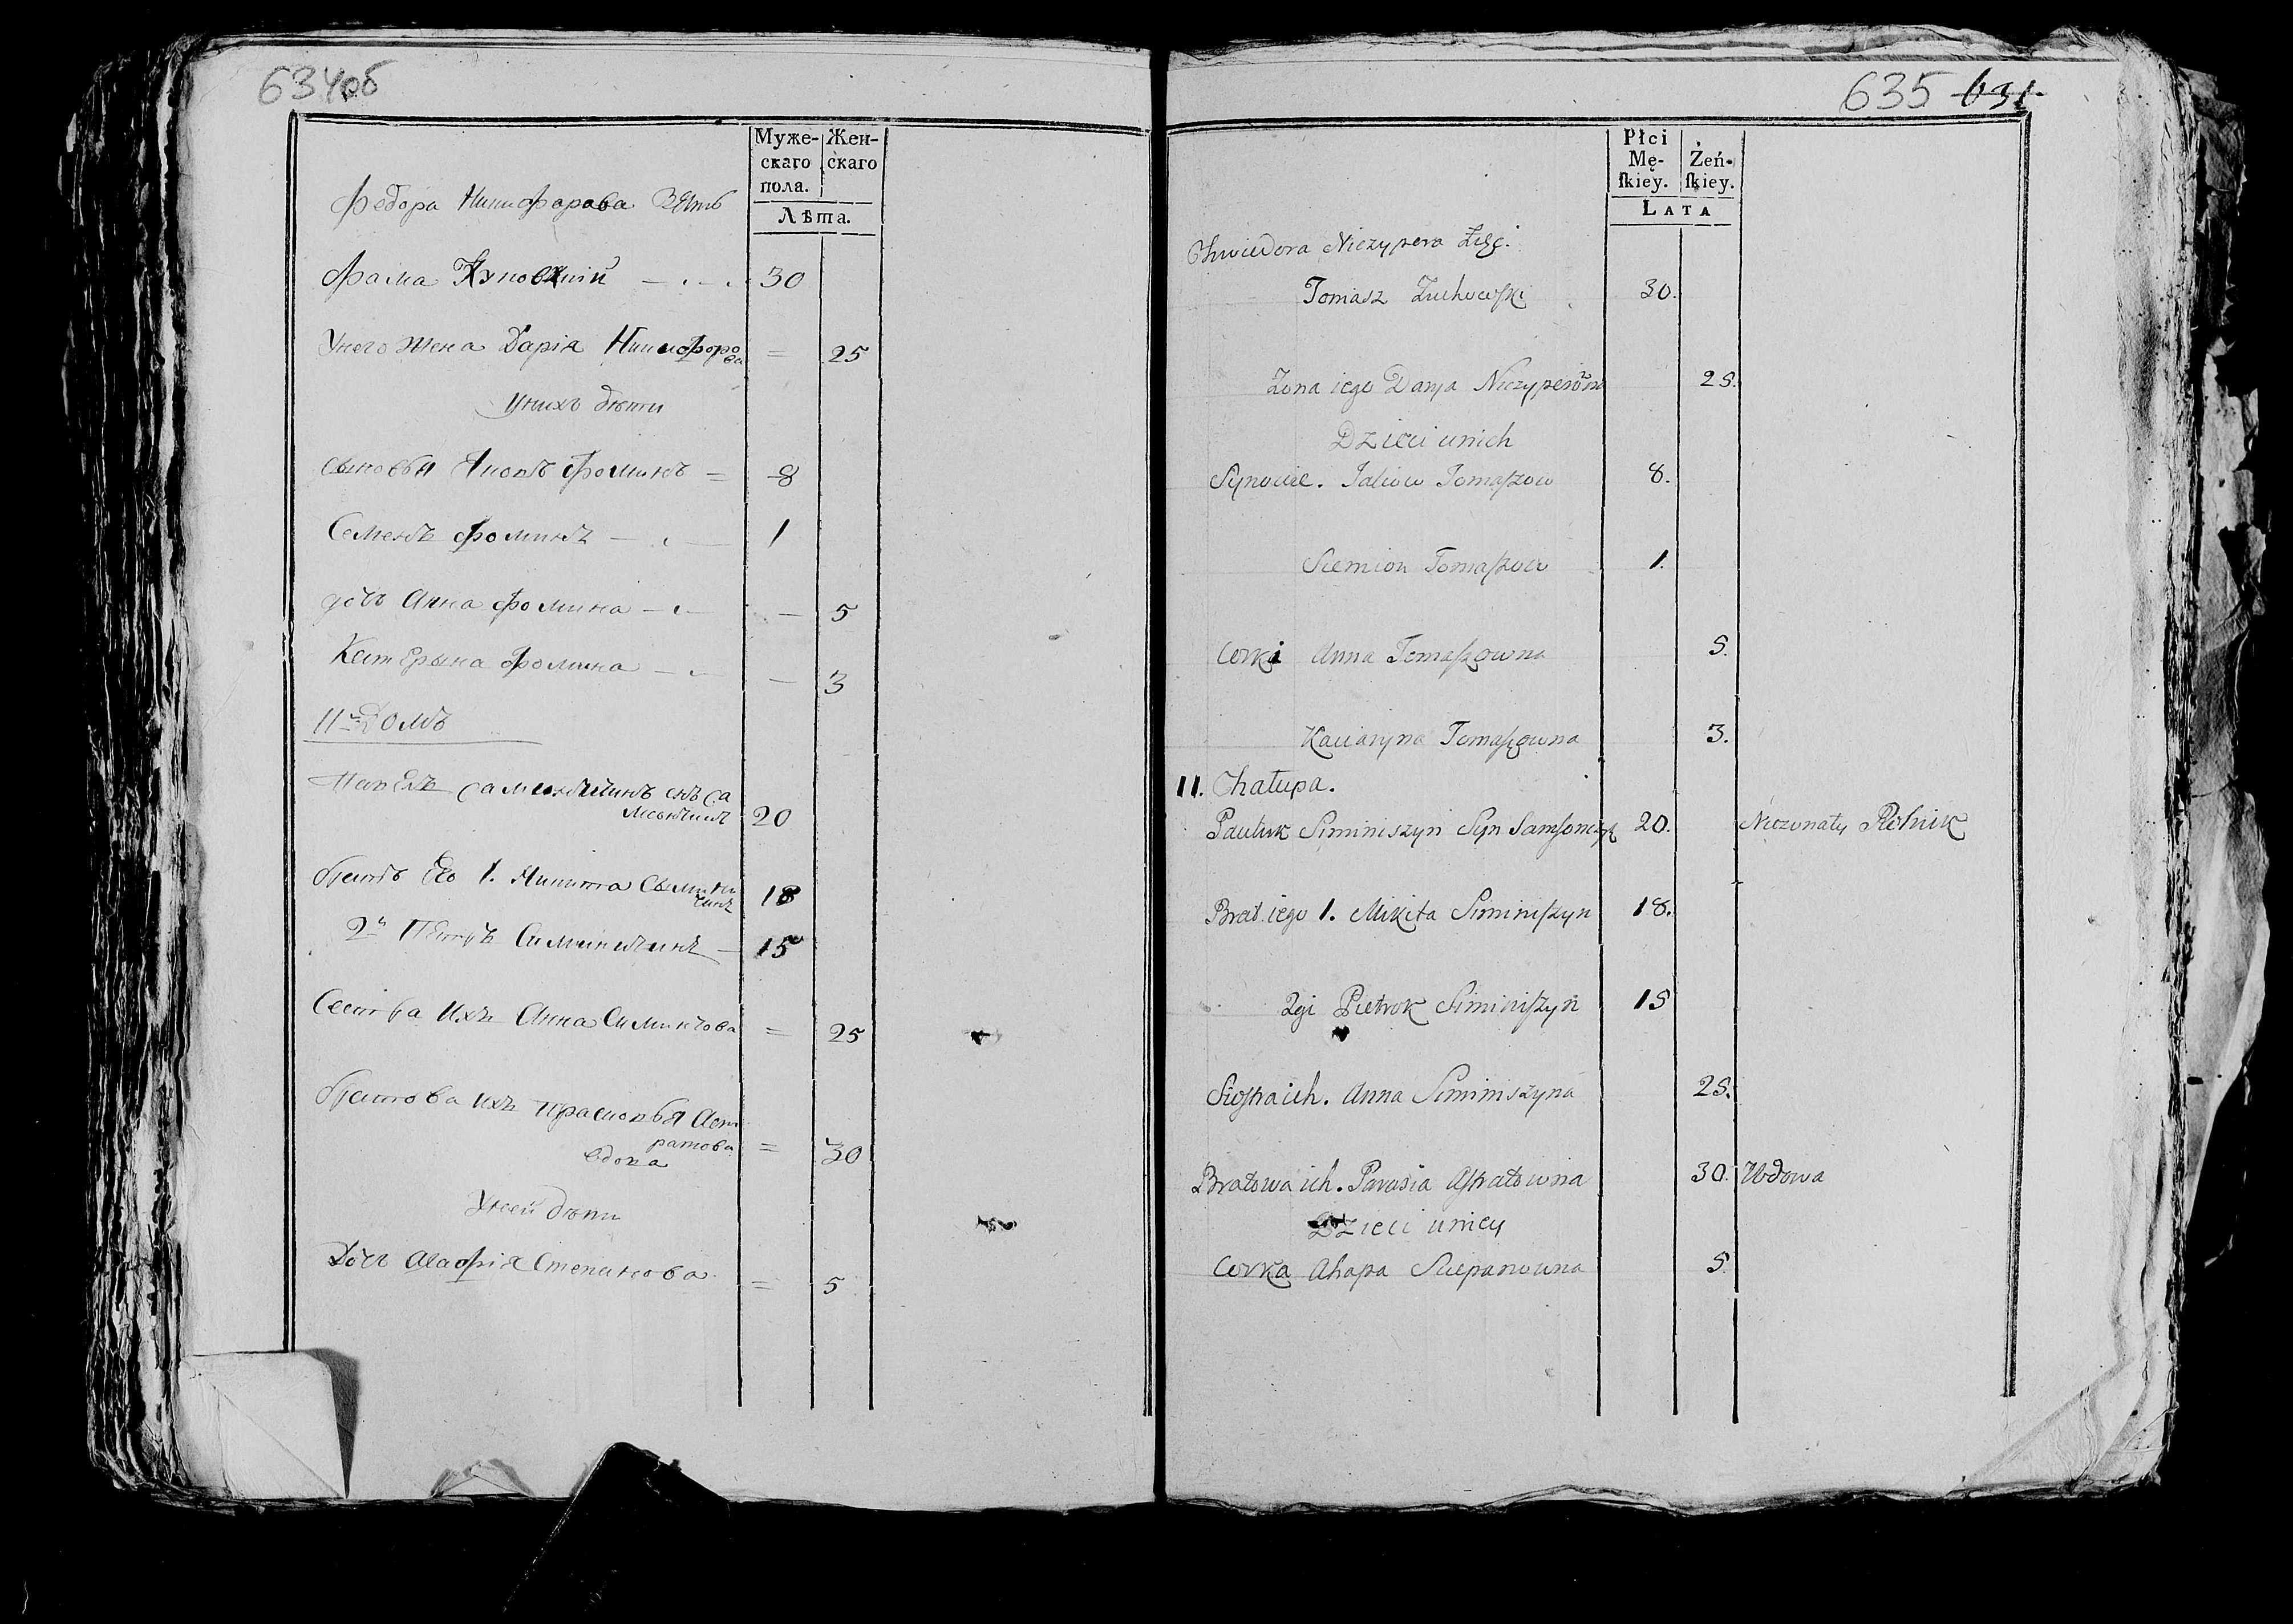 634об
Муже-
скаго
пола.
Жен-
скаго
Лѣта.
Федора Никифарава Зять
Фама 30
Унего Жена Дарія Никифоро
ва = 25
Унихъ дѣти
Сыновья Яковъ Фоминъ = 8
Семенъ Фоминъ 1
дочь Анна Фомина — 5
Катерына Фомина — 3
11й Домъ
20
братъ Его 1. Никита 18
2й Петръ 15
Сестра Ихъ Анна = 25
братова Ихъ Прасковья Аст
ратова
вдова = 30
Уней дѣти
Дочь Агафія Степанова = 5
635 631
Płci
Mę-
ſkiey.
Żeń-
ſkiey.
LATA
Chwiedora Niczypera Zięć.
Tomasz Zuchowſki 30.
Żona iego Darya Niczyperowna 25.
Dzieci unich
Synowie. Jakow Tomaſzow 8.
Siemion Tomaſzow 1.
Corki Anna Tomaſzowna 5.
Kaciaryna Tomaſzowna 3.
11. Chałupa.
Pauluk Siminiszyn Syn Samſonczyk 20. Niezonaty Rolnik
Brat iego 1. Mikita Siminiſzyn 18.
2gi Pietrok Siminiſzyn 15
Sioſtra ich. Anna Siminiszyna 25.
Bratowa ich. Parasia Aſtratowna 30. Wdowa
Dzieci uniey
Corka Ahapa Sciepanowna 5.